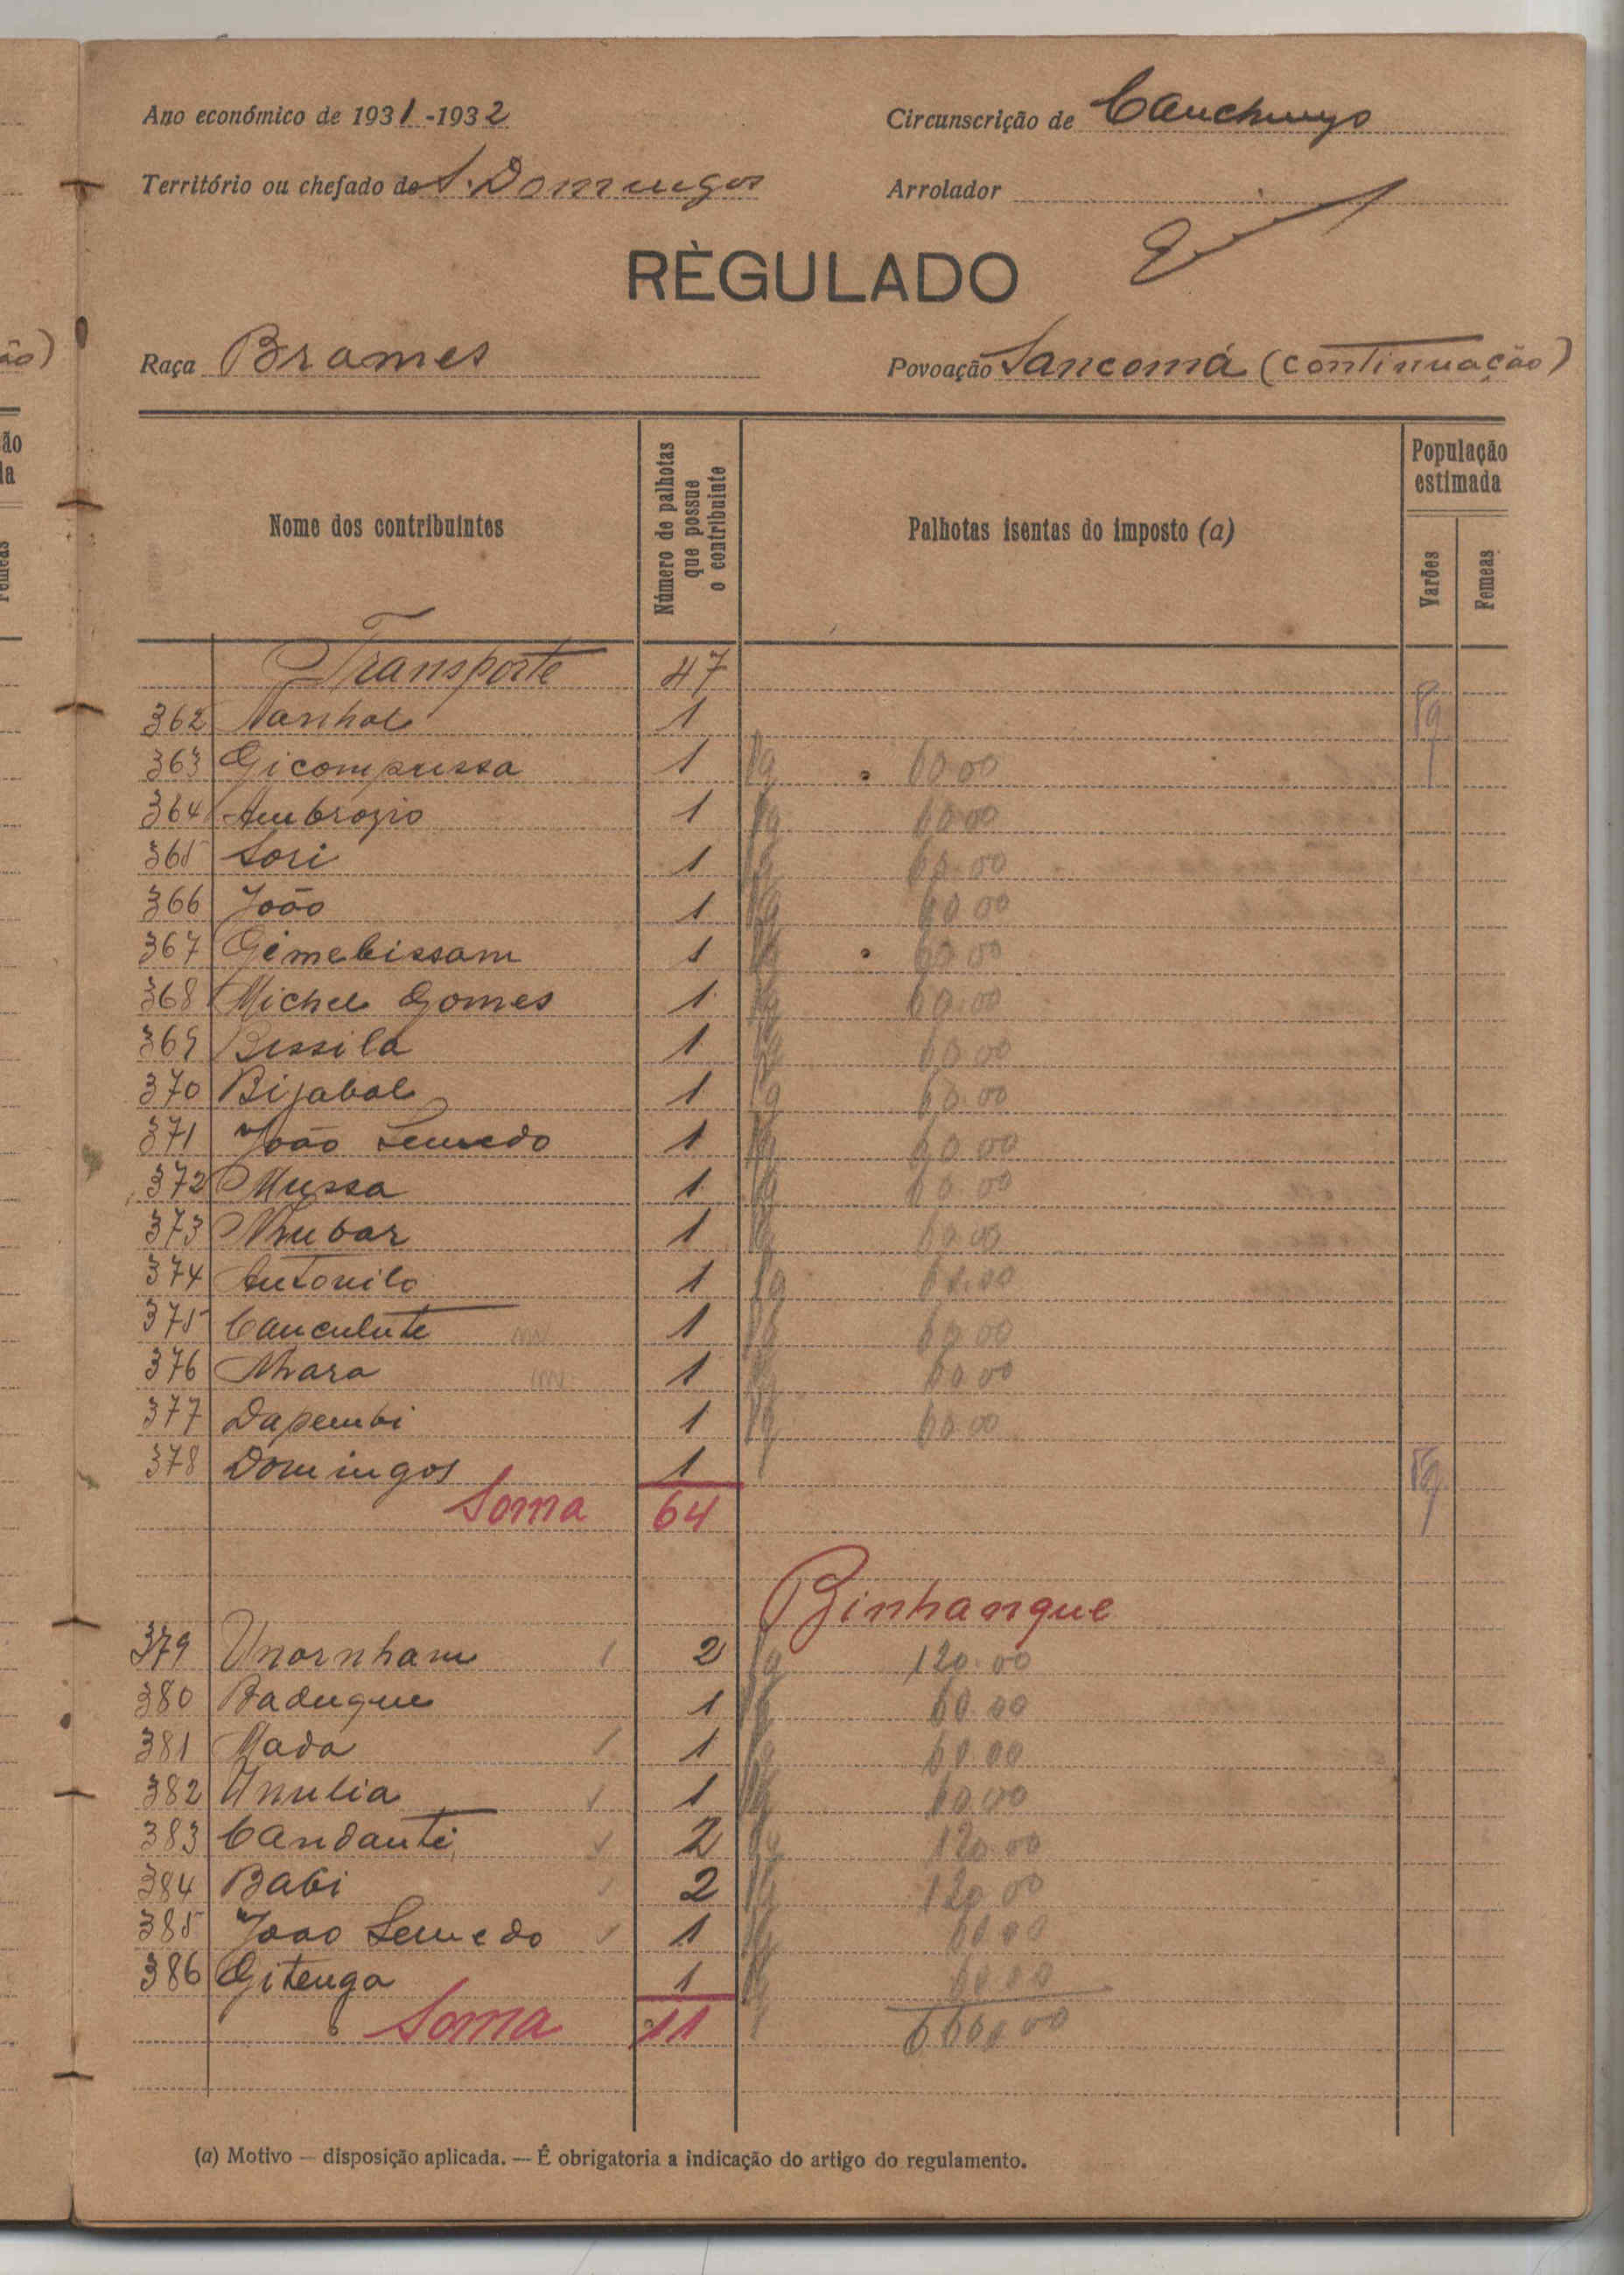 Ano económico de 1931-1932
Circunscrição de Canchungo
Território ou chefado de S. Domingos
Arrolador
RÈGULADO
Raça Brames
Povoação Sancomá (continuação)
Nome dos contribuintes
Número de palhotas que possue o contribuinte
Palhotas isentas do imposto (a)
População estimada
Varões
Femeas
Transporte 47
362 Nanhal 1 Pg
363 Gicompussa 1 Pg 60.00
364 Ambrozio 1 Pg 60.00
365 Sori 1 Pg 60.00
366 João 1 Pg 60.00
367 Gimebissam 1 Pg 60.00
368 Michel Gomes 1 Pg 60.00
369 Bissila 1 Pg 60.00
370 Bijabal 1 Pg 60.00
371 João Semedo 1 Pg 60.00
372 Mussa 1 Pg 60.00
373 Nhubar 1 Pg 60.00
374 Antonilo 1 Pg 60.00
375 Canculute 1 Pg 60.00
376 Nhara 1 Pg 60.00
377 Dapembi 1 Pg 60.00
378 Domingos 1 Pg
Soma 64
Binhangue
379 Unornham 2 Pg 120.00
380 Badugue 1 Pg 60.00
381 Nada 1 Pg 60.00
382 Unulia 1 Pg 60.00
383 Candanti 2 Pg 120.00
384 Babi 2 Pg 120.00
385 Joao Semedo 1 Pg 60.00
386 Gitenga 1 Pg 60.00
Soma 11
(a) Motivo — disposição aplicada. — É obrigatoria a indicação do artigo do regulamento.